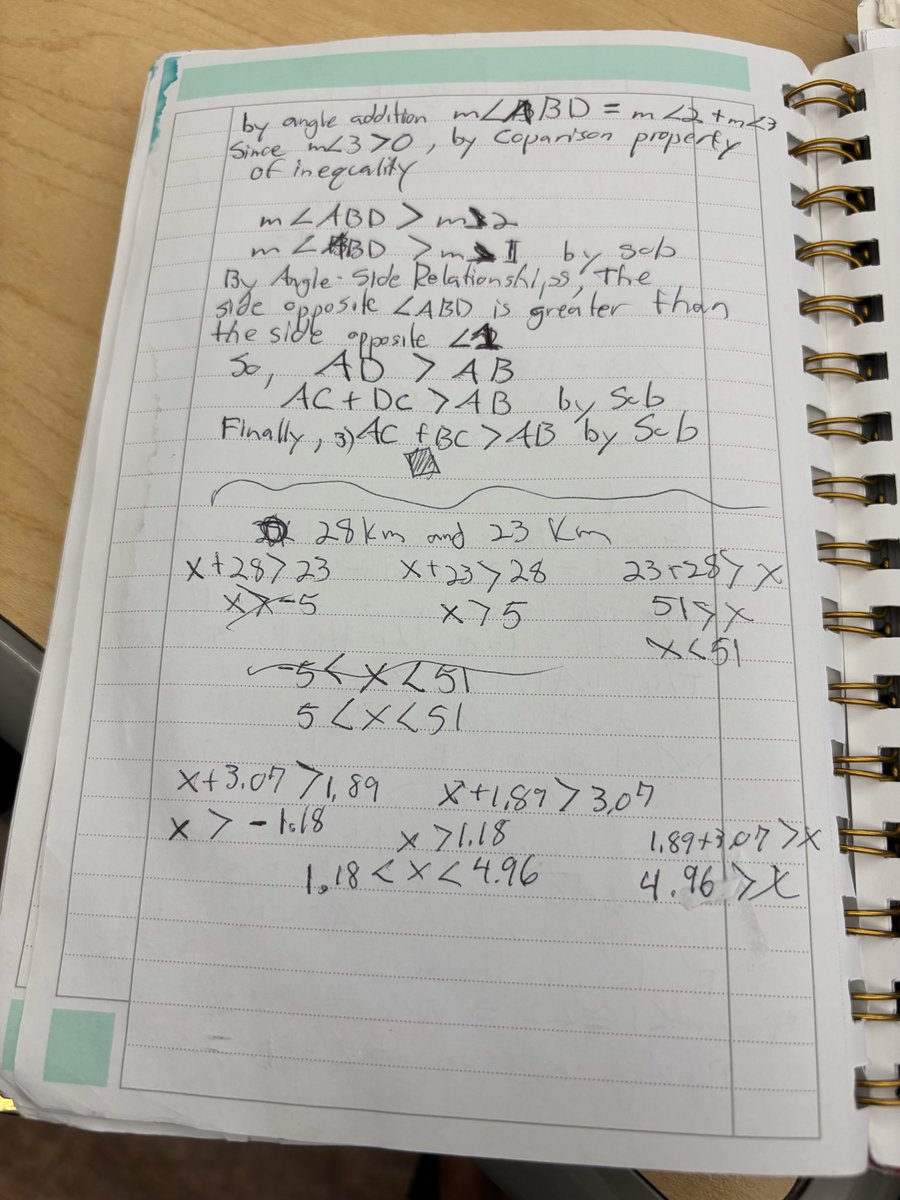 by angle addition m∠ABD = m∠2 + m∠3
Since m∠3 > 0, by Coparison property
of inequality
m∠ABD > m∠2
m∠ABD > m∠1 by sub
By Angle-Side Relationships, the
side opposite ∠ABD is greater than
the side opposite ∠1
So, AD > AB
AC + DC > AB by Sub
Finally, 3) AC + BC > AB by Sub
28 km and 23 Km
x+28>23 x+23>28 23+28>x
x>-5 x>5 51>x
x<51
-5<x<51
5<x<51
x+3.07>1.89 x+1.89>3.07
x>-1.18 x>1.18 1.89+3.07>x
1.18<x<4.96 4.96>x